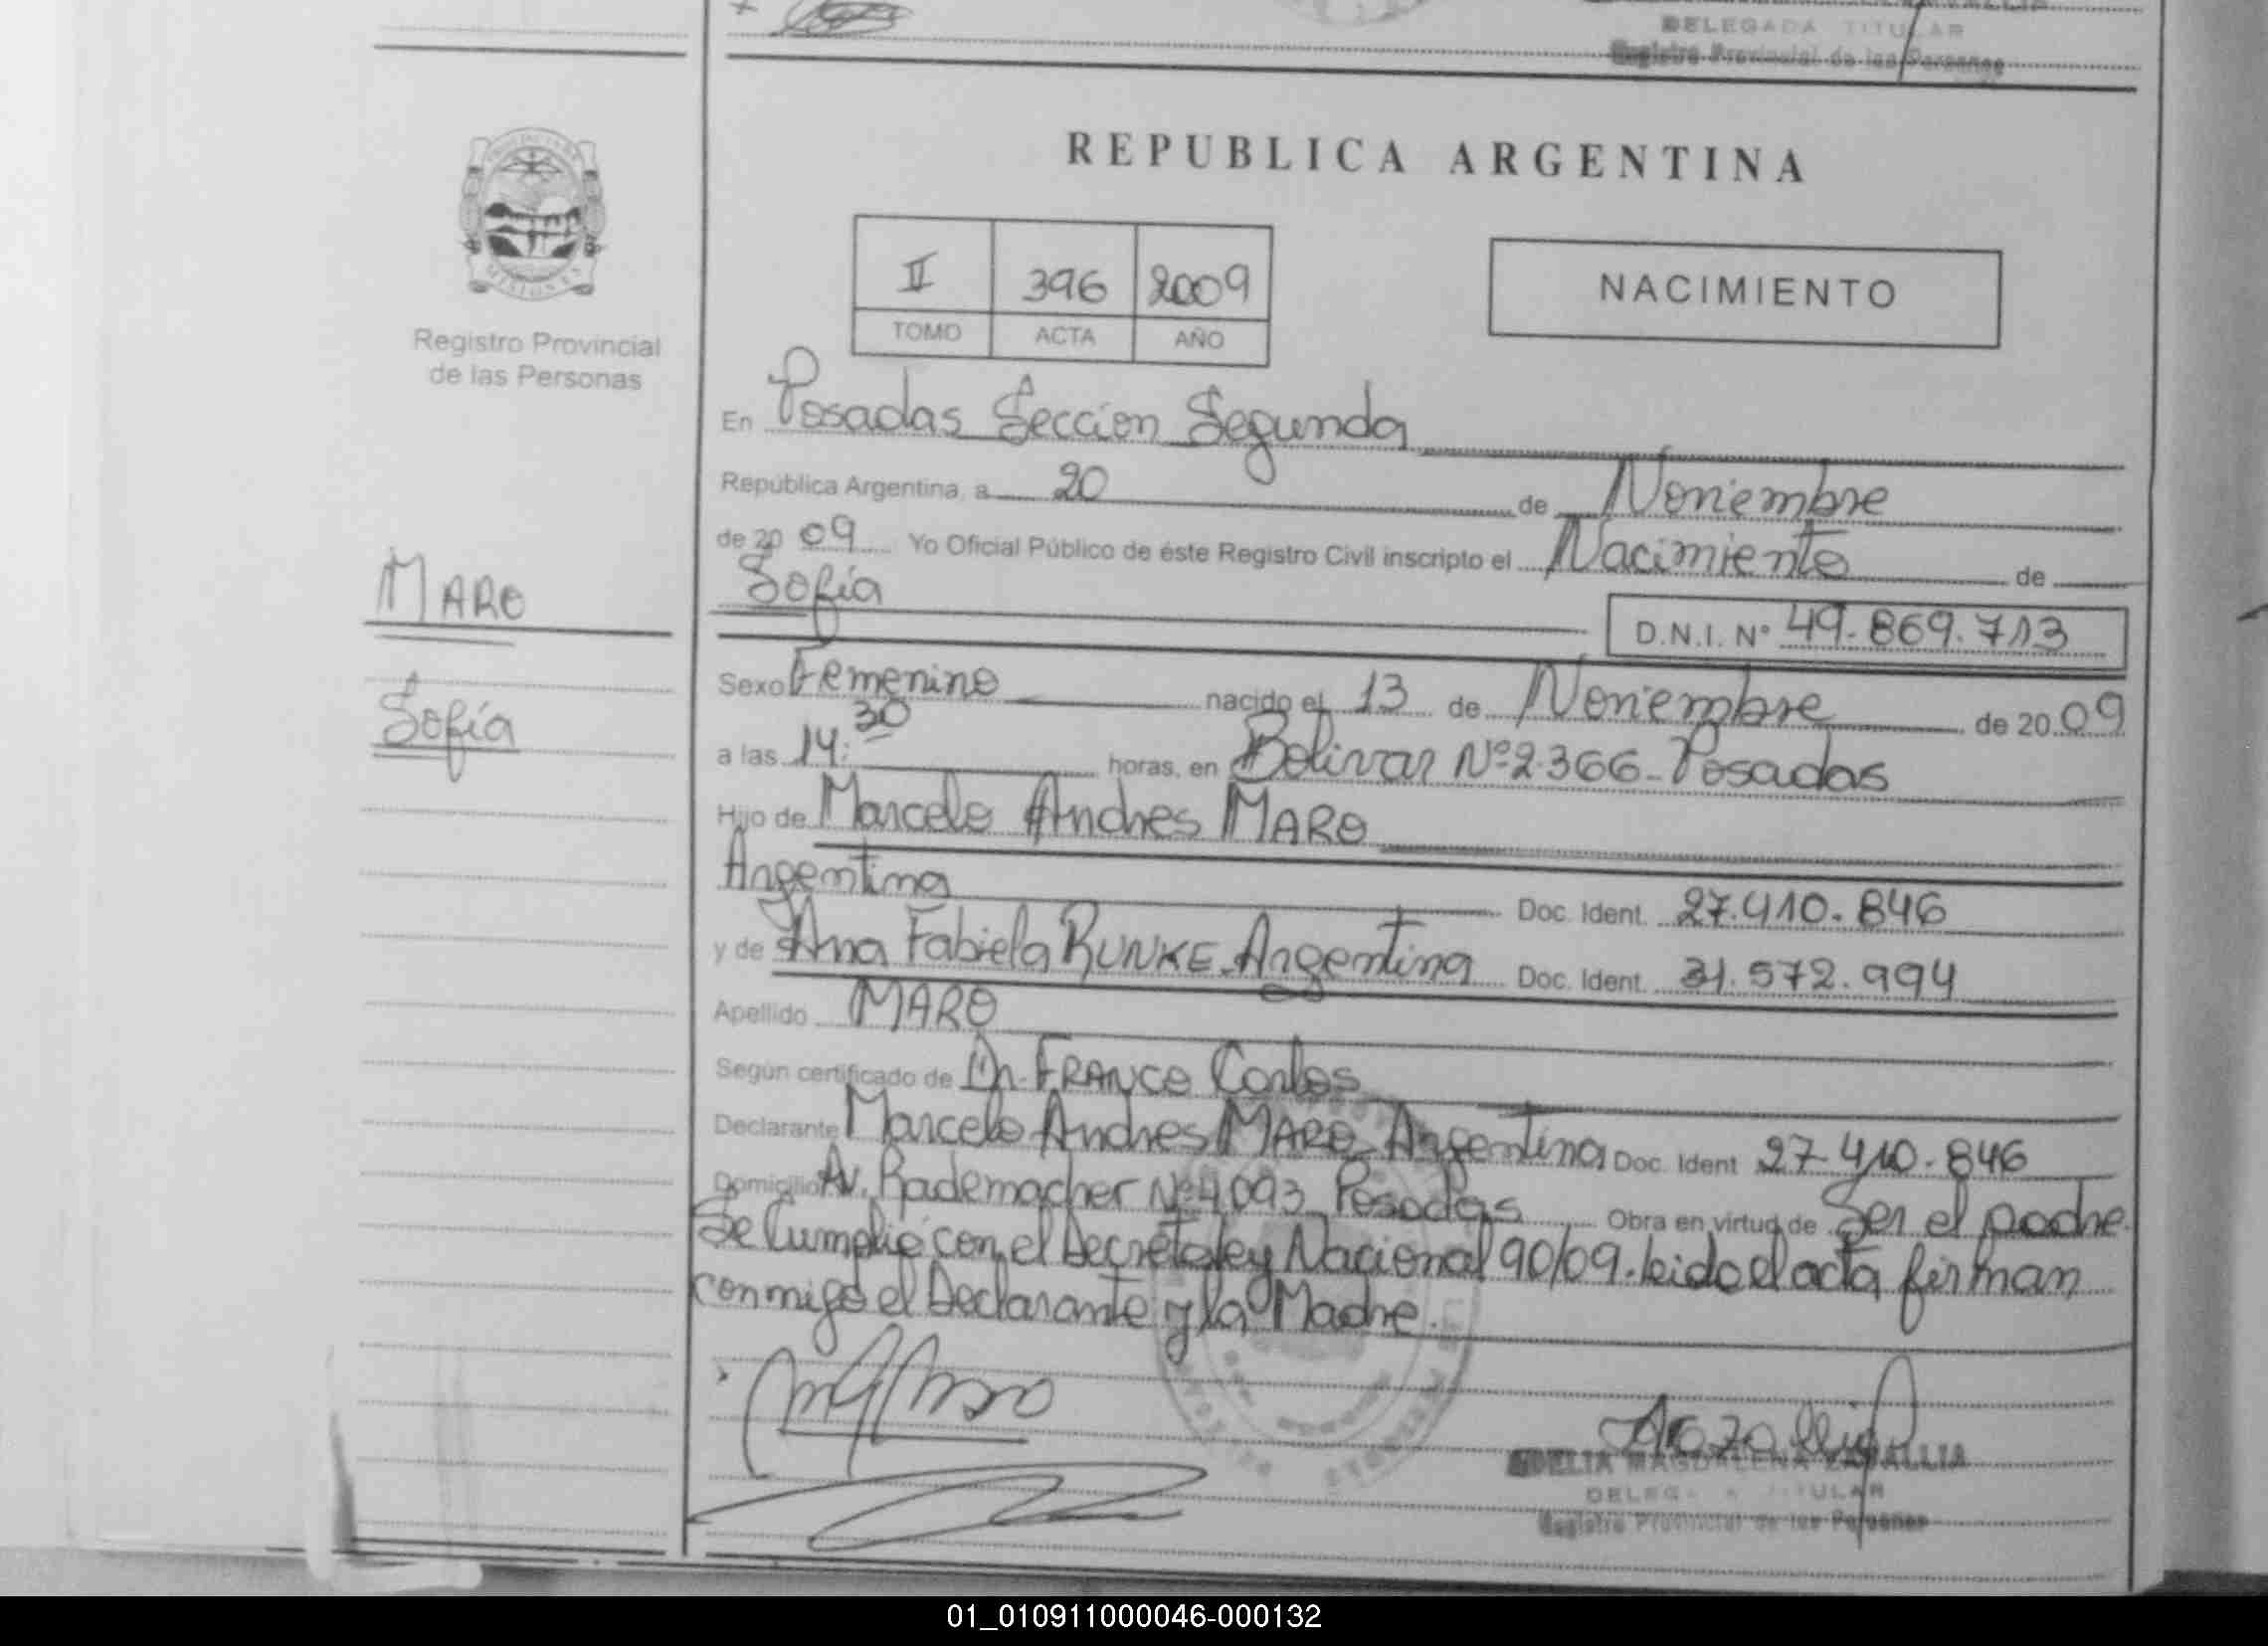 DELEGADA TITULAR
Registro Provincial de las Personas
REPUBLICA ARGENTINA
II 396 2009
TOMO ACTA AÑO
NACIMIENTO
MISIONES
Registro Provincial
de las Personas
En Posadas Sección Segunda
República Argentina, a 20 de Noviembre
de 20 09 Yo Oficial Público de éste Registro Civil inscripto el Nacimiento de
MARO
Sofía
D.N.I. Nº 49.869.713
Sexo Femenino nacido el 13 de Noviembre de 20 09
Sofía
a las 14:30 horas, en Bolivar Nº 2.366- Posadas
Hijo de Marcelo Andres MARO
Argentina Doc. Ident. 27.410.846
y de Ana Fabiela RUNKE- Argentina Doc. Ident. 31.572.994
Apellido MARO
Según certificado de Dr. FRANCO Carlos
Declarante Marcelo Andres MARO- Argentina Doc. Ident 27.410.846
Domicilio Av. Rademacher Nº 4.093 Posadas Obra en virtud de Ser el padre.
Se Cumplió con el Decreto ley Nacional 90/09. Leida el acta firman
conmigo el Declarante y la Madre.
ADELIA MAGDALENA ZAVALLIA
DELEGADA TITULAR
Registro Provincial de las Personas
01_010911000046-000132